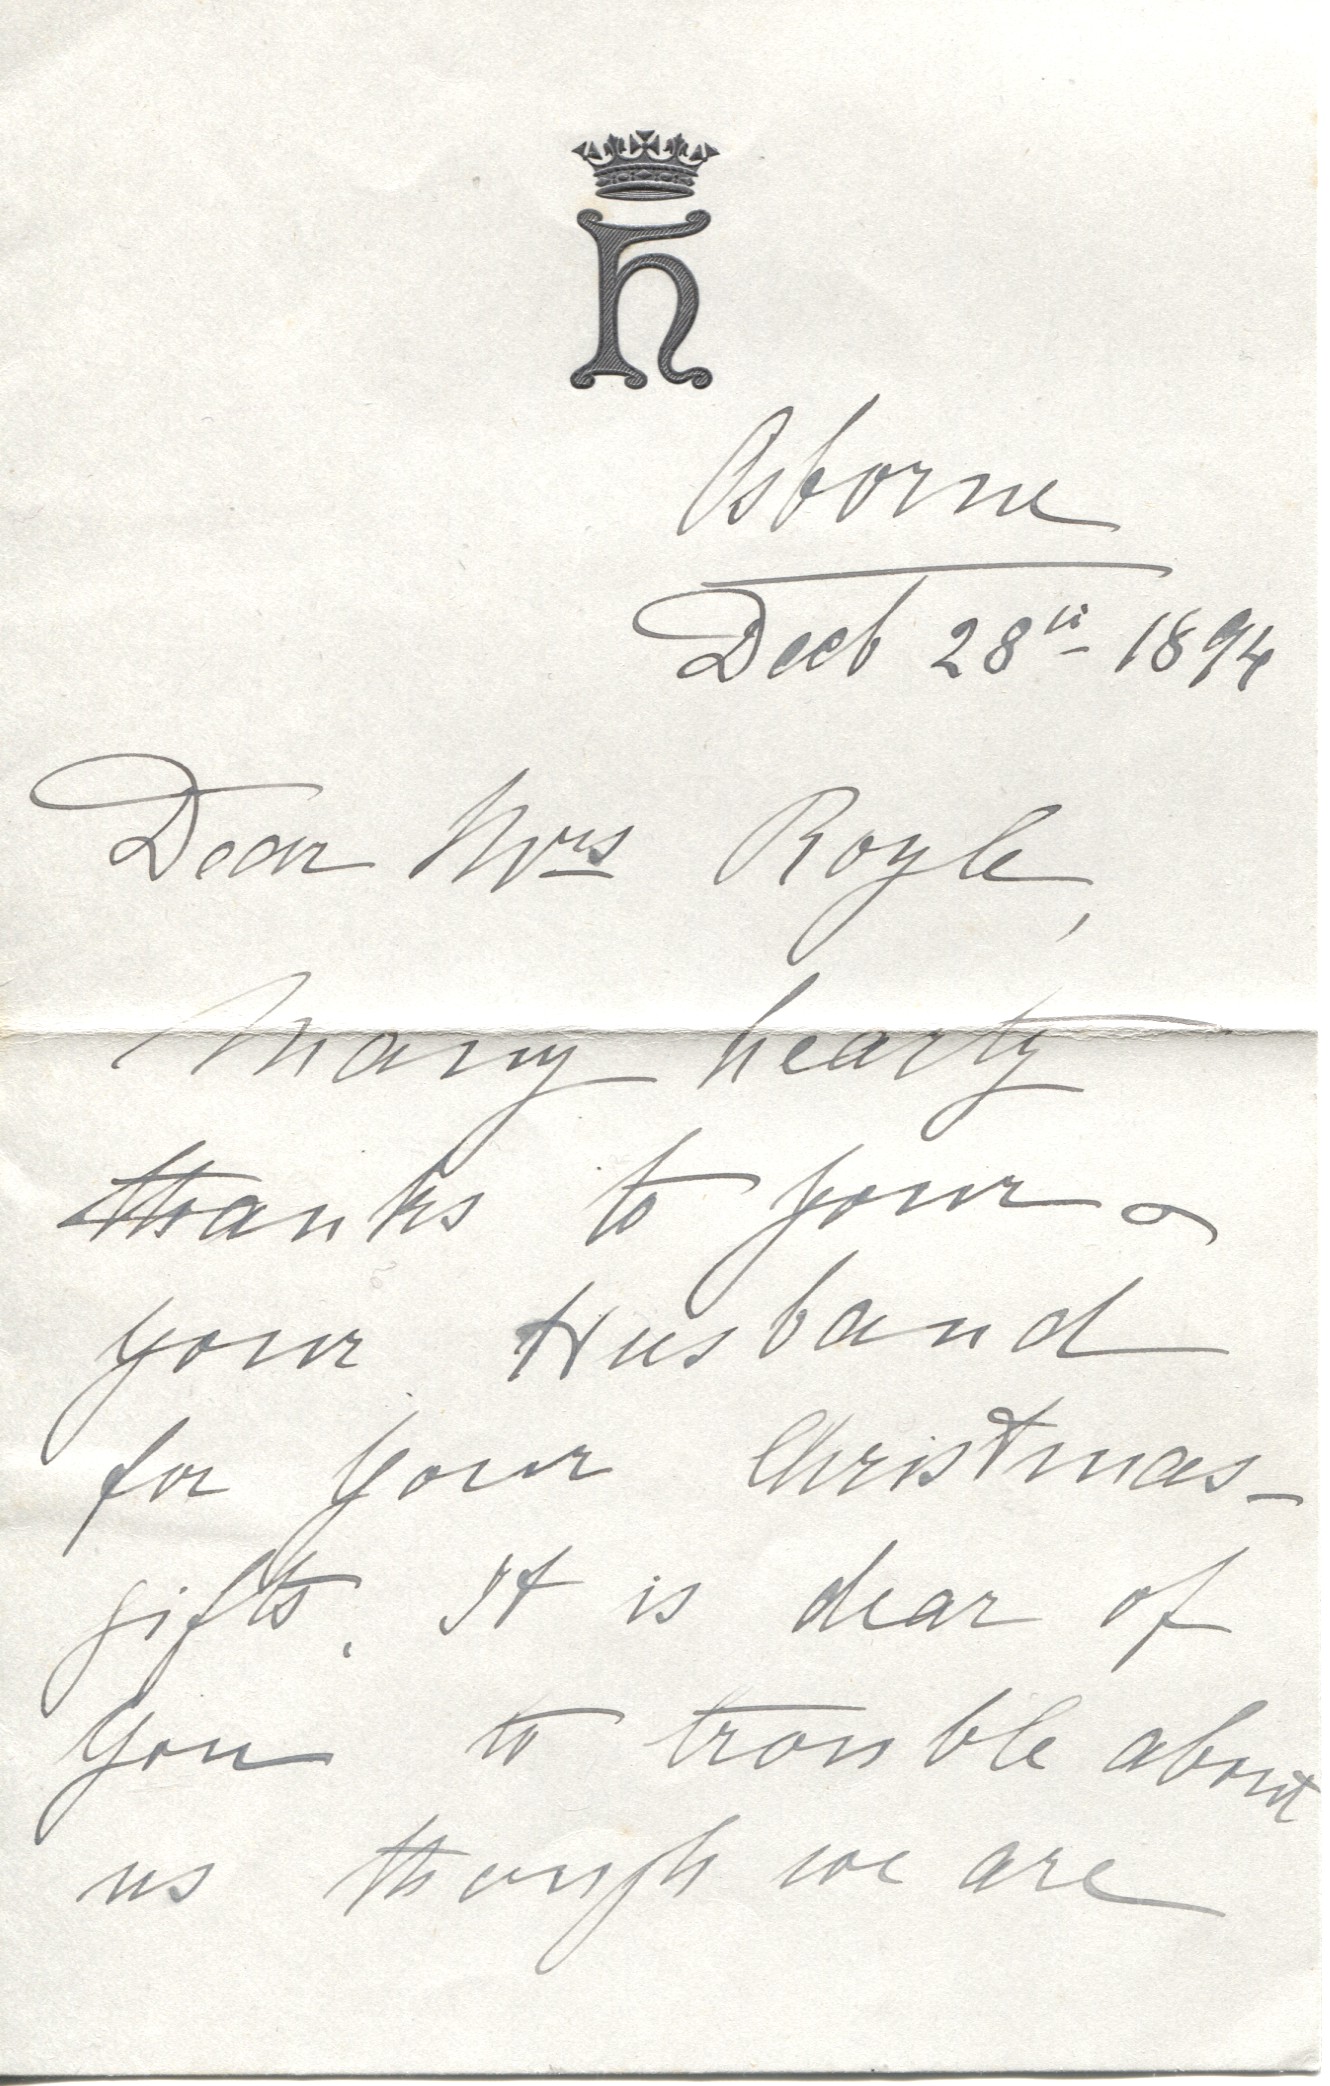 H
Osborne
Decb 28th 1894
Dear Mrs Royle,
Many hearty
thanks to your &
your Husband
for your Christmas-
gifts. It is dear of
you to trouble about
us though we are